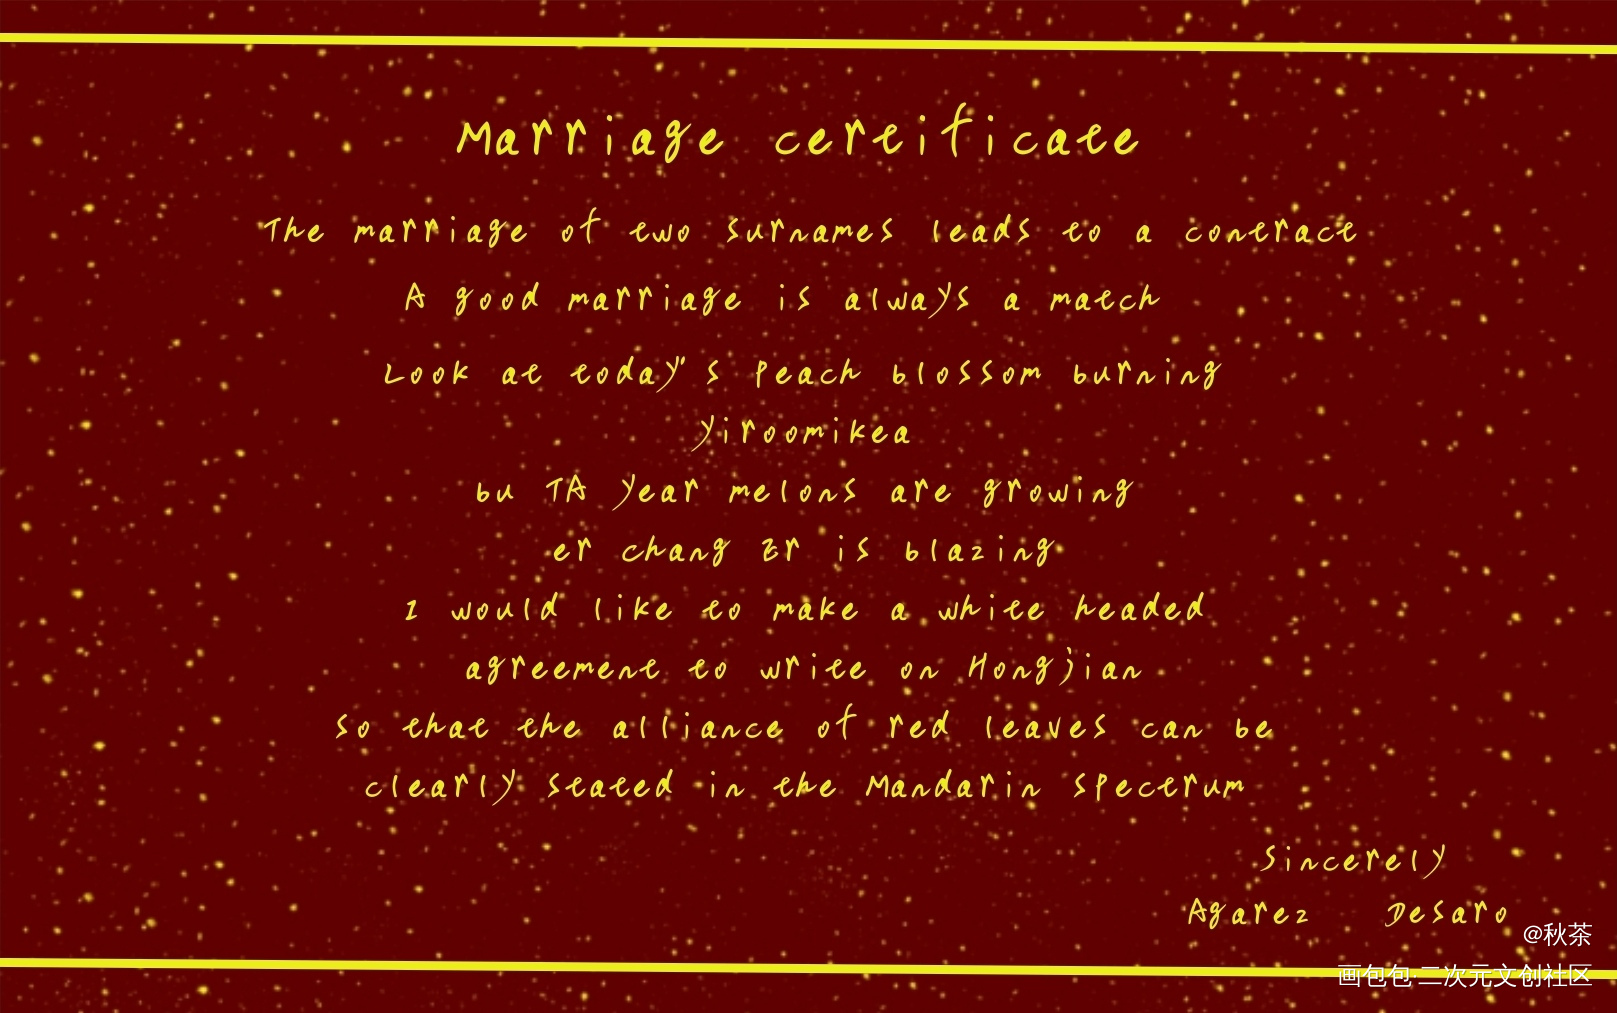 Marriage certificate
The marriage of two surnames leads to a contract
A good marriage is always a match
Look at today's peach blossom burning
yiroomikea
bu TA year melons are growing
er chang Er is blazing
I would like to make a white headed
agreement to write on Hongjian
so that the alliance of red leaves can be
clearly stated in the Mandarin spectrum
Sincerely
Agarez Desaro
@秋茶
画包包·二次元文创社区